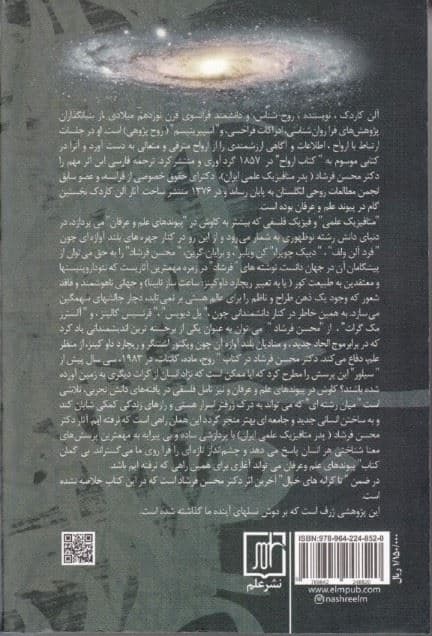 آلن کاردک ، نویسنده ، روح شناس، و دانشمند فرانسوی قرن نوزدهم میلادی ،از بنیانگذاران
پژوهش‌های فرا روان‌شناسی،ادراکات فراحسی، و "اسپیریتیسم" ( روح پژوهی) است. او در جلسات
ارتباط با ارواح ، اطلاعات و آگاهی ارزشمندی را از ارواح مترقی و متعالی به دست آورد و آنرا در
کتابی موسوم به " کتاب ارواح" در ۱۸۵۷ گرد آوری و منتشر کرد. ترجمه فارسی این اثر مهم را
دکتر محسن فرشاد ( پدر متافیزیک علمی ایران)، دکترای حقوق خصوصی از فرانسه، و عضو سابق
انجمن مطالعات روحی انگلستان به پایان رساند و در ۱۳۷۶ منتشر ساخت آثار آلن کاردک نخستین
گام در پیوند علم و عرفان بوده است.
"متافیزیک علمی" و فیزیک فلسفی که بیشتر به کاوش در "پیوندهای علم و عرفان "می پردازد، در
دنیای دانش رشته نوظهوری به شمار می‌رود و از این رو در کنار چهره های بلند آوازه‌ای چون
"فرد آلن ولف" ، "دیپک چوپرا" کن ویلبر ، و برایان گرین، "محسن فرشاد" را به حق می‌توان از
پیشگامان آن در جهان دانست نوشته های "فرشاد" در زمره مهمترین آثاریست که نئوداروینیستها
و معتقدین به طبیعت کور ( یا به تعبیر ریچارد داوکینز؛ ساعت ساز نابینا) و جهانی ناهوشمند و فاقد
شعور که وجود یک ذهن طراح و ناظم را برای عالم هستی بر نمی تابد، دچار چالشهای سهمگین
می‌سازد. به همین خاطر در کنار دانشمندانی چون "پل دیویس" ، "فرنسیس کالینز" ، و "آلستر
مک گرات" ، از "محسن فرشاد" می توان به عنوان یکی از برجسته ترین اندیشمندانی یاد کرد
که در برابر موج الحاد جدید ، و منادیان بلند آوازه آن چون ویکتور استنگر و ریچارد داو کینز، از منظر
علم، دفاع می‌کند. دکتر محسن فرشاد در کتاب " روح، ماده، کائنات" در ۱۹۸۳، سی سال پیش از
"سیلور" این پرسش را مطرح کرد که آیا ممکن است که نژاد انسان از کرات دیگری به زمین آورده
شده باشند؟ کاوش در پیوندهای علم و عرفان و نیز تامل فلسفی در یافته‌های دانش تجربی، تلاشی
است "میان رشته ای" که می‌تواند به درک ژرفتر اسرار هستی و رازهای زندگی کمکی شایان کند
و به ساختن انسانی جدید و جامعه ای بهتر منجر گردد این همان راهی است که نرفته ایم آثار دکتر
محسن فرشاد ( پدر متافیزیک علمی ایران) با پردازشی ساده و بی پیرایه به مهمترین پرسش های
معنا شناختی هر انسان پاسخ می دهد و چشم‌انداز تازه ای را فرا روی ما می‌گستراند. بی گمان
کتاب "پیوندهای علم وعرفان می تواند آغازی برای همین راهی که نرفته ایم باشد.
در ضمن "تا کرانه های خیال" آخرین اثر دکتر محسن فرشاد است که در این کتاب خلاصه شده
است.
این پژوهشی ژرف است که بر دوش نسلهای آینده ما گذاشته شده است.
ISBN: 978-964-224-852-0
نشرعلم
www.elmpub.com
@nashreelm
۱/۱۵۰/۰۰۰ ریال